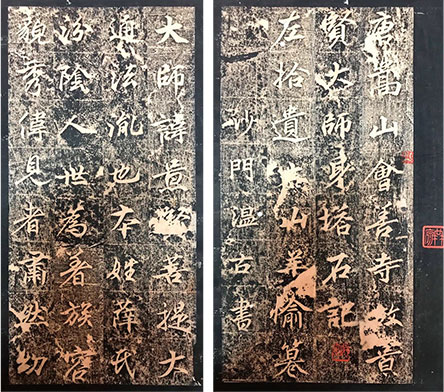 唐嵩山會善寺故景
賢大師身塔石記
左拾遺山羊愉纂
沙門溫古書
大師諱景賢菩提大
通法胤也本姓薛氏
汾陰人世爲著族容
貌秀偉見者肅然幼